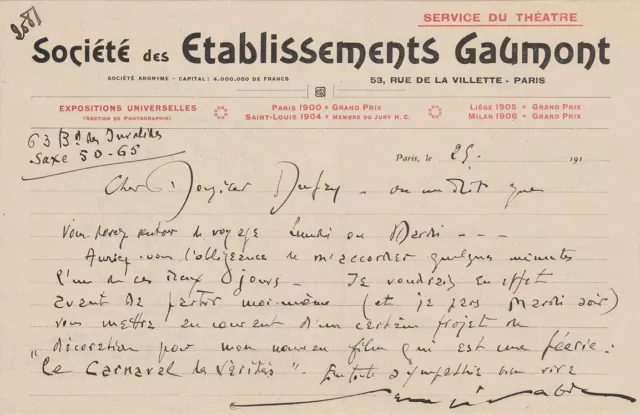 2081
SERVICE DU THÉATRE
Société des Etablissements Gaumont
SOCIÉTÉ ANONYME - CAPITAL : 4.000.000 DE FRANCS
53, RUE DE LA VILLETTE - PARIS
EXPOSITIONS UNIVERSELLES
(SECTION DE PHOTOGRAPHIE)
PARIS 1900 • GRAND-PRIX
SAINT-LOUIS 1904 • MEMBRE DU JURY H. C.
LIÈGE 1905 • GRAND PRIX
MILAN 1906 • GRAND PRIX
63 Bd des Invalides
Saxe 50-65
Paris, le 25. 191
Cher Monsieur Dufay - on me dit que
vous serez autour de voyage Lundi ou Mardi - - -
Auriez-vous l'obligeance de m'accorder quelques minutes
l'un de ces deux jours - Je voudrais en effet
avant de partir moi-même (et je pars Mardi soir)
vous mettre au courant d'un certain projet de
décoration pour mon nouveau film qui est une féerie :
"Le Carnaval des Vérités". En toute sympathie bien vive